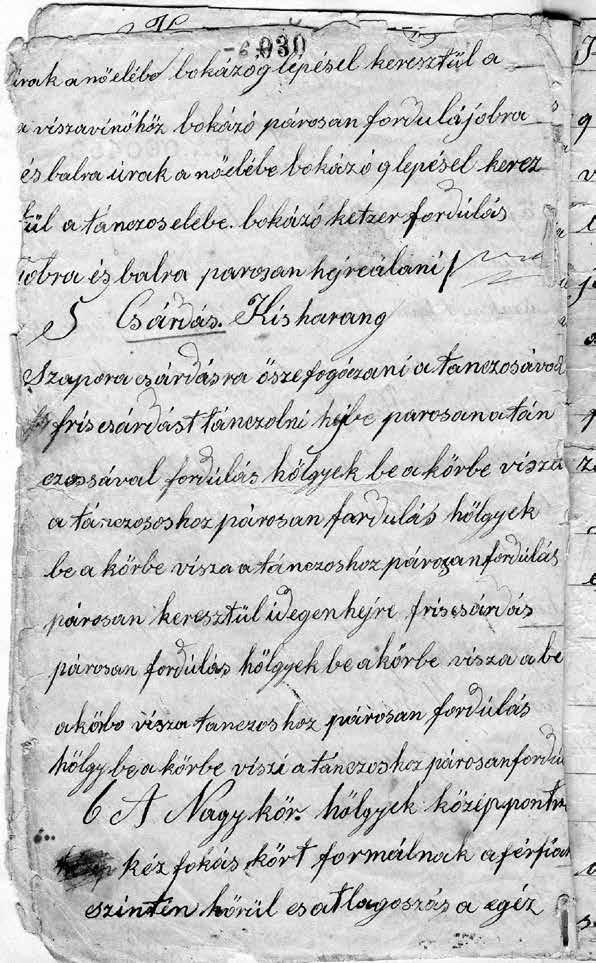 -6.030
úrak a nőelébe bokázóg lépésel keresztül a
a viszavinőhöz bokázó párosan fordulájobra
és balra úrak a nőelébe bokázó g lepésel kerez
tül a tánczoselebe. bokázó ketzer fordúlás
jobra és balra parosan hejreálani
5 Csárdás. Kisharang
Szapora csárdásra öszefogózani a tanczosával
friscsárdást tánczolni hejbe parosan a tán
czossával fordúlás hölgyek be a körbe visza
a tánczososhoz párosan fardulás hölgyek
be a körbe visza a tánczoshoz pározan fordúlás
párosan keresztül idegenhejre friscsárdás
párosan fordúlás hölgyek be a körbe visza a be
a körbe visza tanczoshoz párosan fordúlás
hölgy be a körbe viszi a tánczoshoz párosanfordú
6 A Nagy kör. hölgyek közép pontr
kéz fokás kört formálnak a férfiak
szintén körül csatlagoszás a egéz